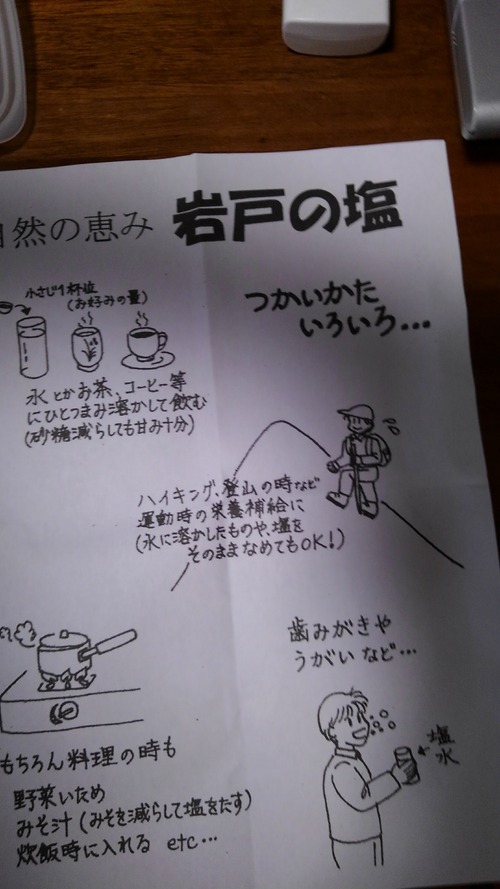 自然の恵み 岩戸の塩
つかいかた
いろいろ…
小さじ1杯位
(お好みの量)
水とかお茶、コーヒー等
にひとつまみ溶かして飲む
(砂糖減らしても甘み十分)
ハイキング、登山の時など
運動時の栄養補給に
(水に溶かしたものや、塩を
そのままなめてもOK!)
もちろん料理の時も
野菜いため
みそ汁(みそを減らして塩をたす)
炊飯時に入れる etc…
歯みがきや
うがいなど…
塩
水